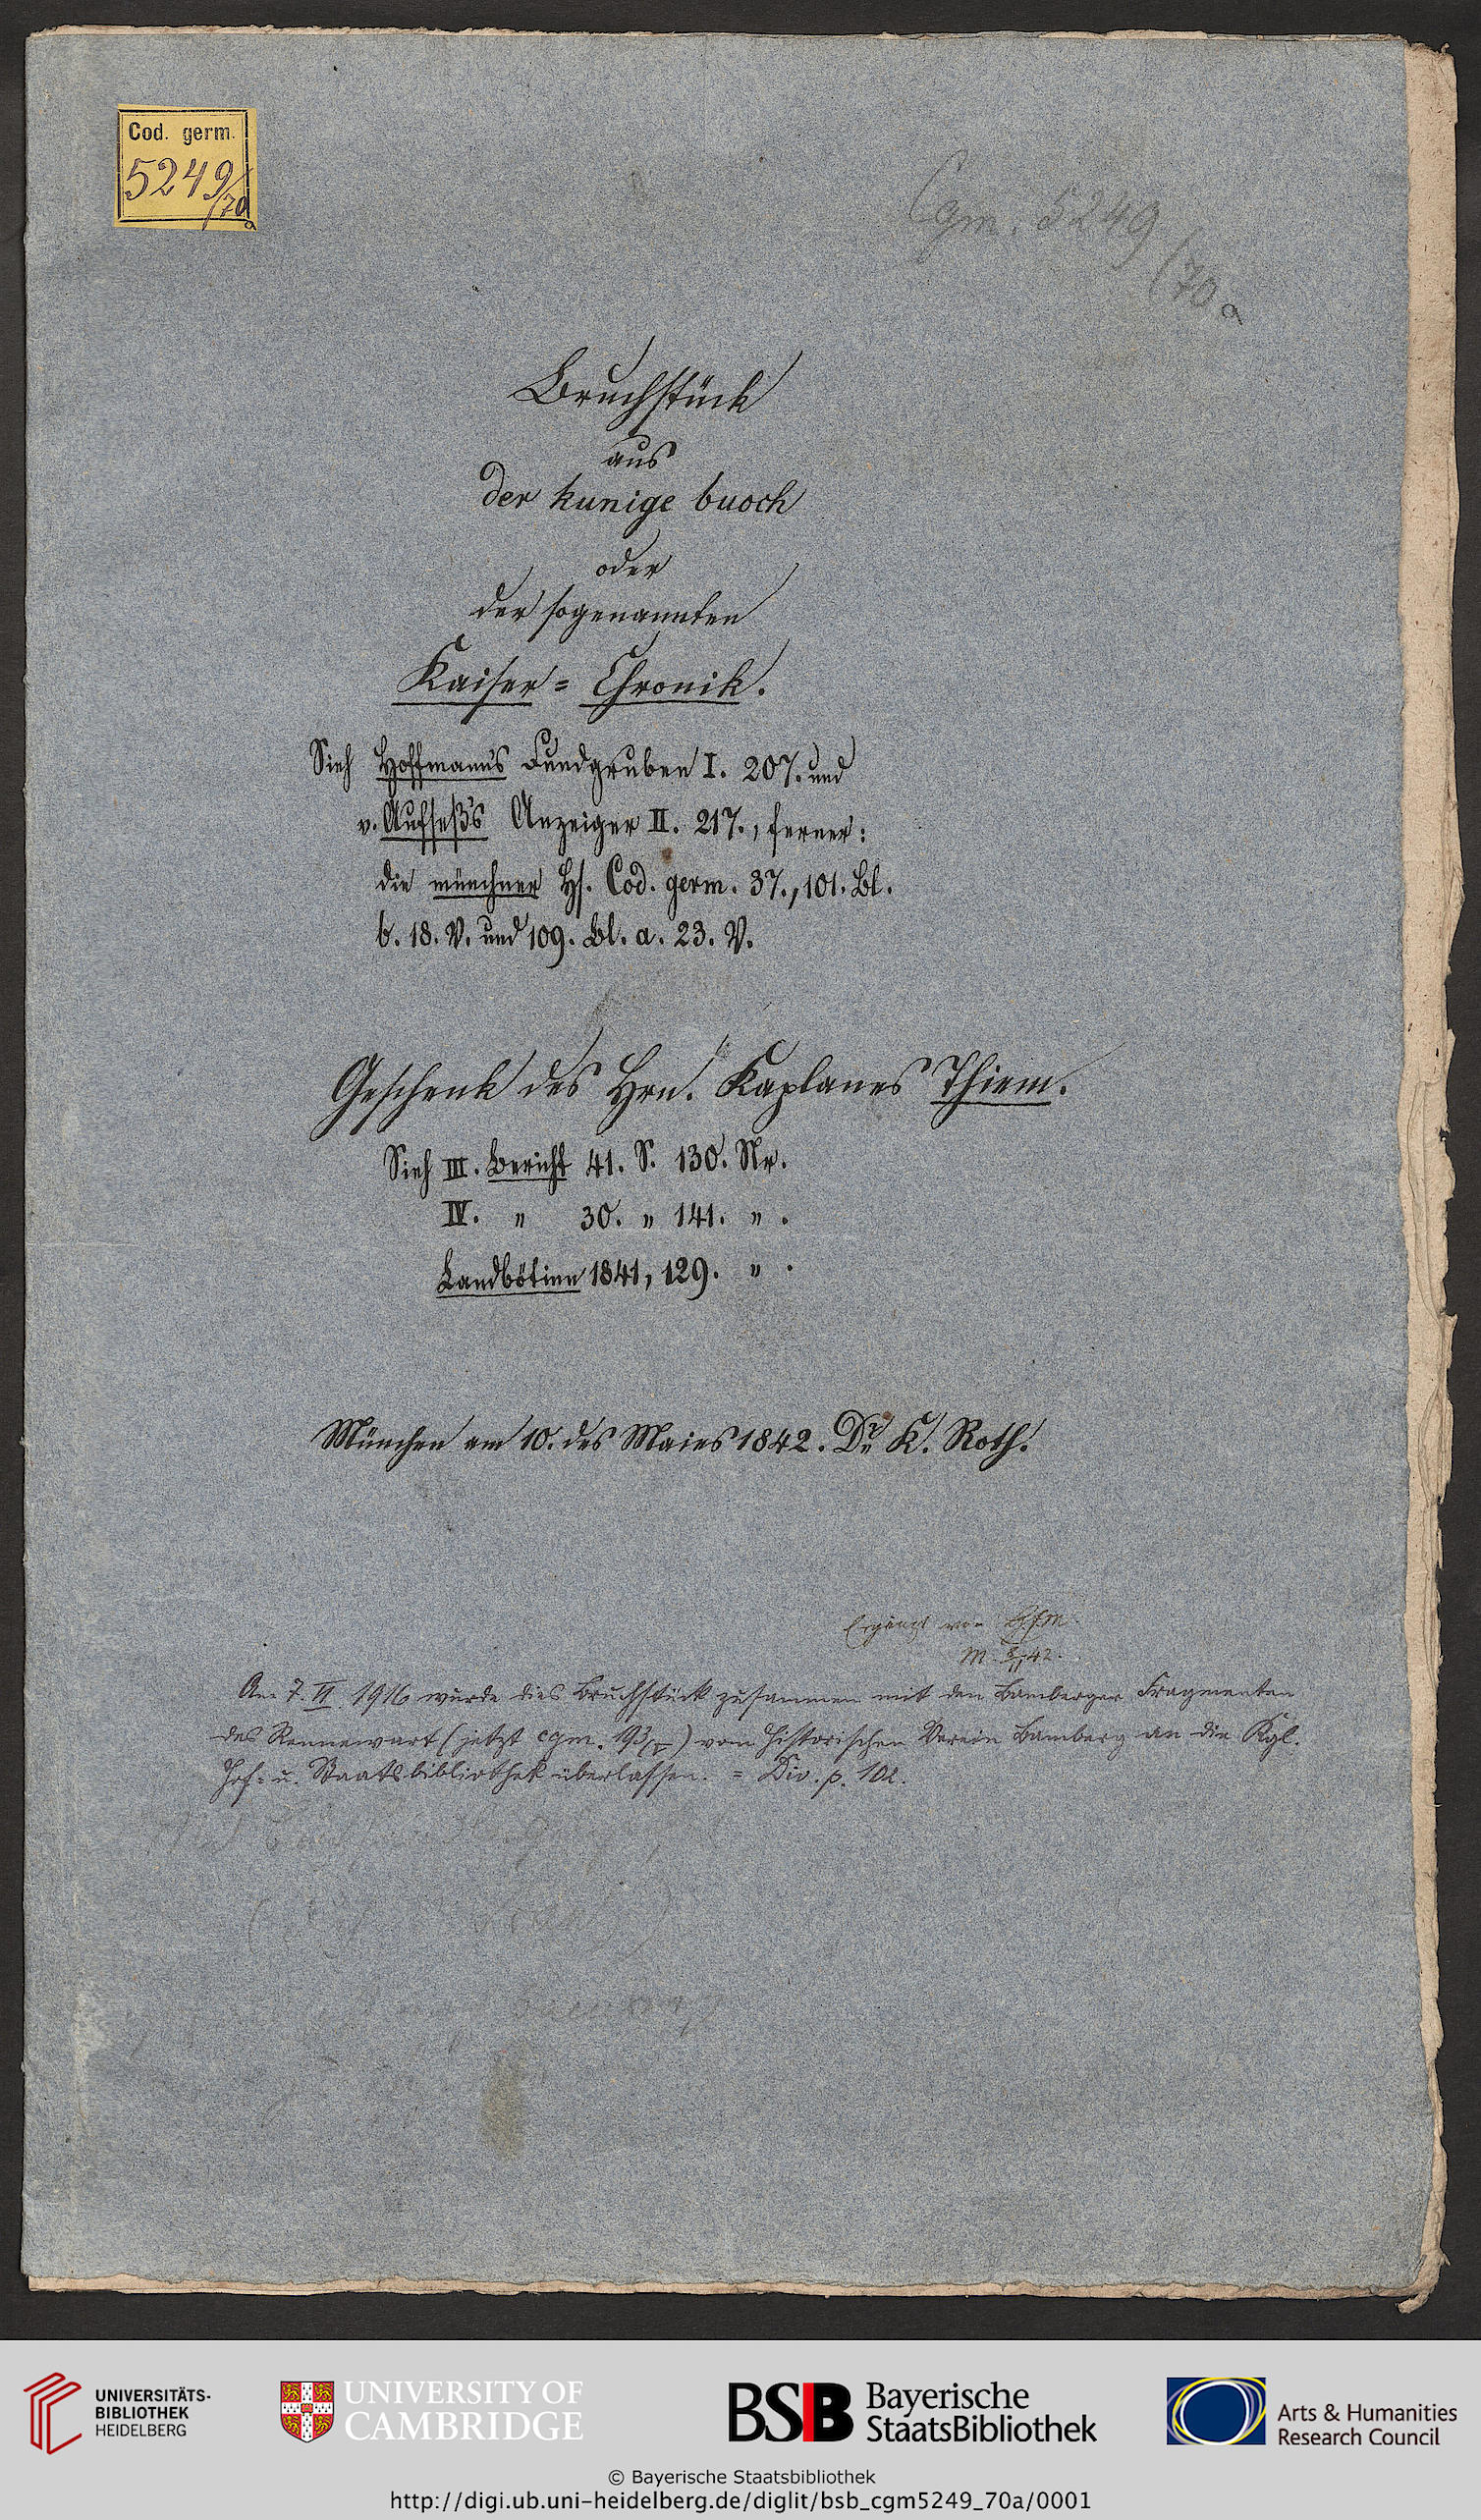 Cod. germ.
5249/70
a
Cgm. 5249
/70 a
Bruchstück
aus
der kunige buoch
oder
der sogenannten
Kaiser= Chronik.
Sieh Hoffmann's Fundgruben I. 207. und
v. Aufseß's Anzeiger II. 217., ferner:
die münchner Hs. Cod. germ. 37., 101. Bl.
b. 18. V. und 109. Bl. a. 23. V.
Geschenk des Hrn. Kaplanes Thiem.
Sieh III. Bericht 41. S. 130. Nr.
IV. " 30. " 141. " .
Landbötinn 1841, 129. " .
München am 10. des Maies 1842. Dr. K. Roth.
Ergänzt von
M. 42.
Am 7. II 1916 wurde dies Bruchstück zusammen mit den Bamberger Fragmenten
des Rennewart (jetzt cgm. 193/V) vom historischen Verein Bamberg an die Kgl.
Hof- u. Staatsbibliothek überlassen. = Div. p. 102.
UNIVERSITÄTS-
BIBLIOTHEK
HEIDELBERG
UNIVERSITY OF
CAMBRIDGE
BSB
Bayerische
StaatsBibliothek
Arts & Humanities
Research Council
© Bayerische Staatsbibliothek
http://digi.ub.uni-heidelberg.de/diglit/bsb_cgm5249_70a/0001